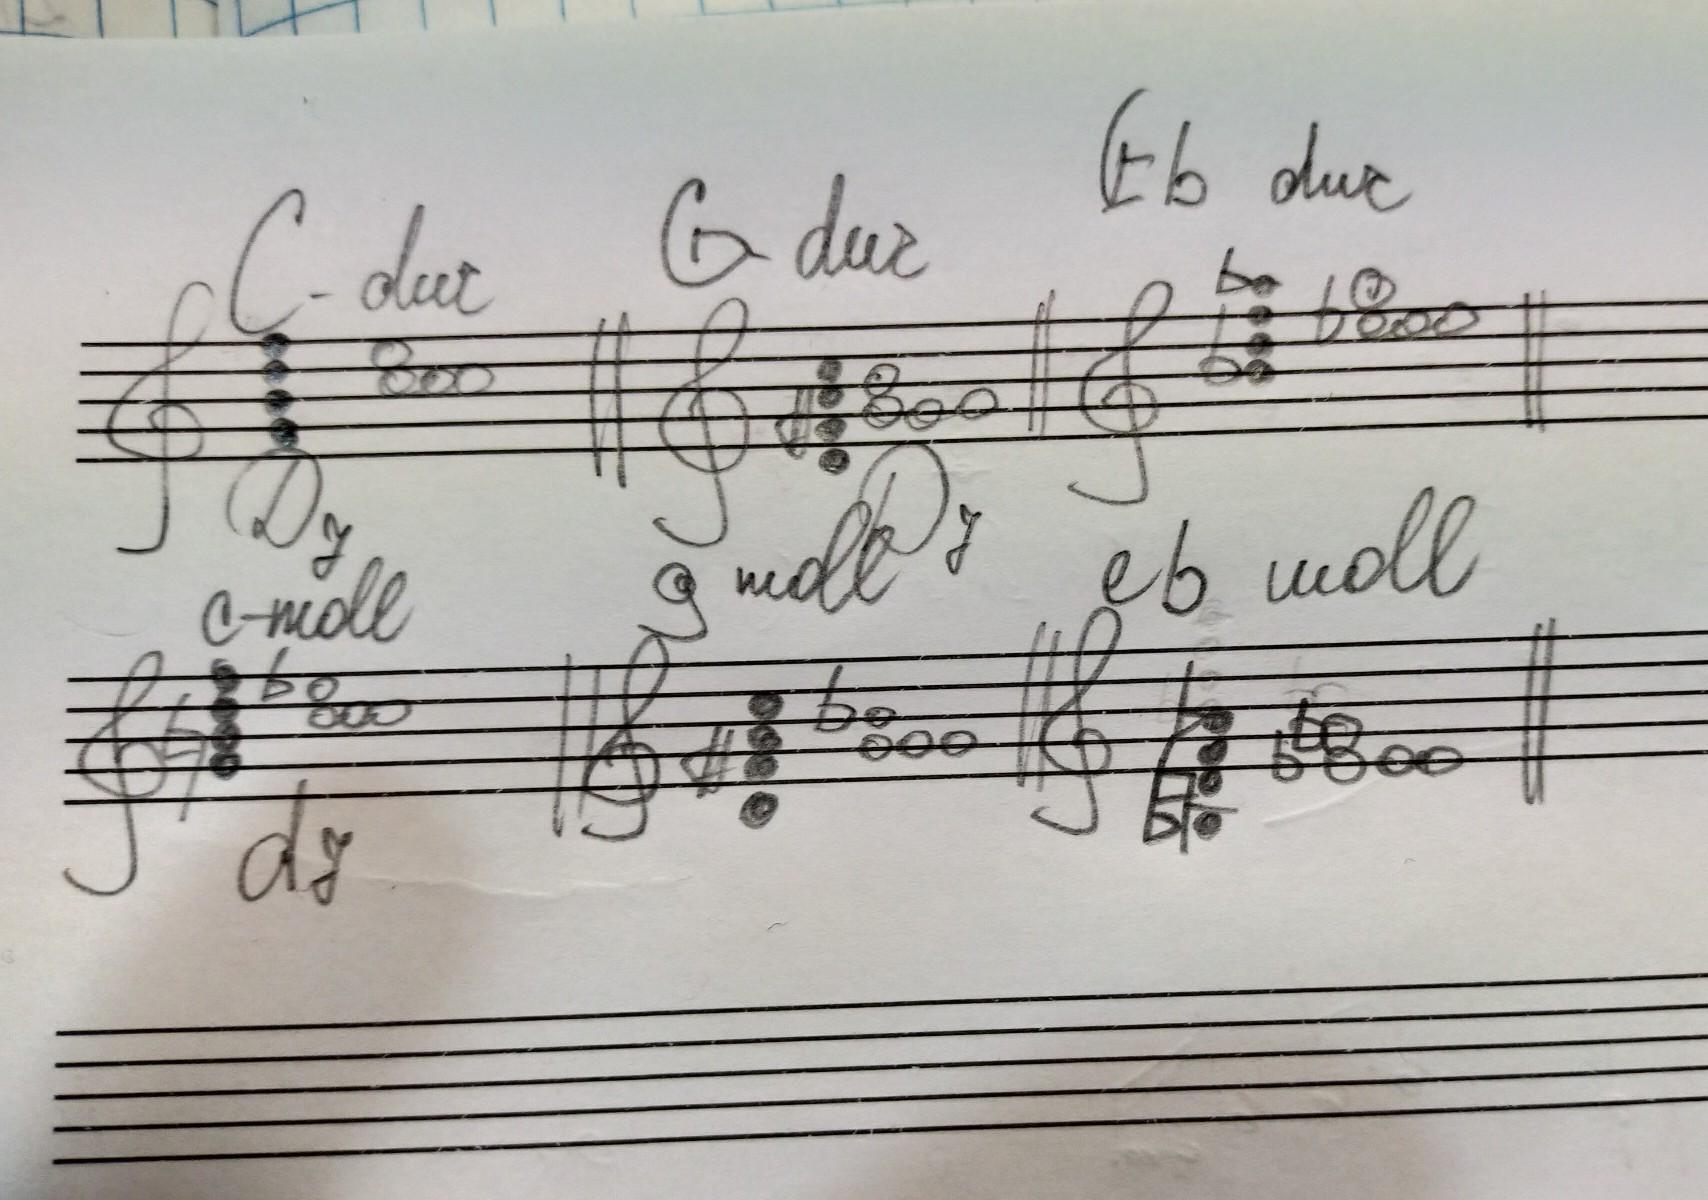 C-dur G dur Eb dur
D7 D7
c-moll g moll eb moll
d7